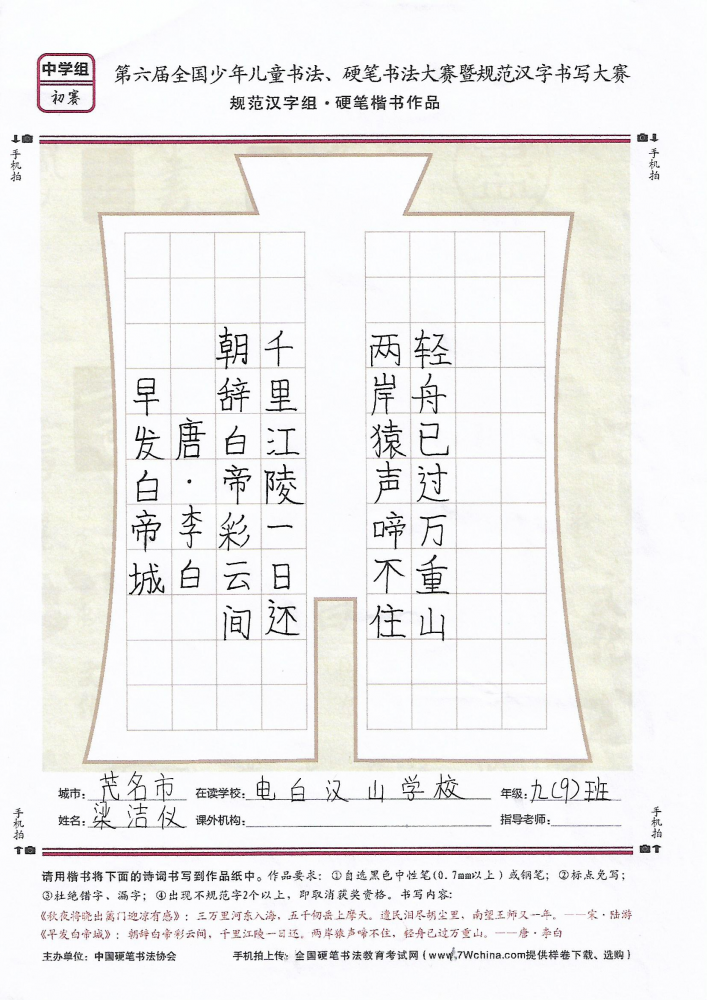 中学组
初赛
第六届全国少年儿童书法、硬笔书法大赛暨规范汉字书写大赛
规范汉字组·硬笔楷书作品
手机拍
手机拍
早发白帝城
唐·李白
朝辞白帝彩云间
千里江陵一日还
两岸猿声啼不住
轻舟已过万重山
城市：茂名市 在读学校：电白汉山学校 年级：九(9)班
姓名：梁洁仪 课外机构： 指导老师：
手机拍
手机拍
请用楷书将下面的诗词书写到作品纸中。作品要求：①自选黑色中性笔(0.7mm以上)或钢笔；②标点免写；
③杜绝错字、漏字；④出现不规范字2个以上，即取消获奖资格。书写内容：
《秋夜将晓出篱门迎凉有感》：三万里河东入海，五千仞岳上摩天。遗民泪尽胡尘里，南望王师又一年。——宋·陆游
《早发白帝城》：朝辞白帝彩云间，千里江陵一日还。两岸猿声啼不住，轻舟已过万重山。——唐·李白
主办单位：中国硬笔书法协会 手机拍上传：全国硬笔书法教育考试网（www.7Wchina.com提供样卷下载、选购）